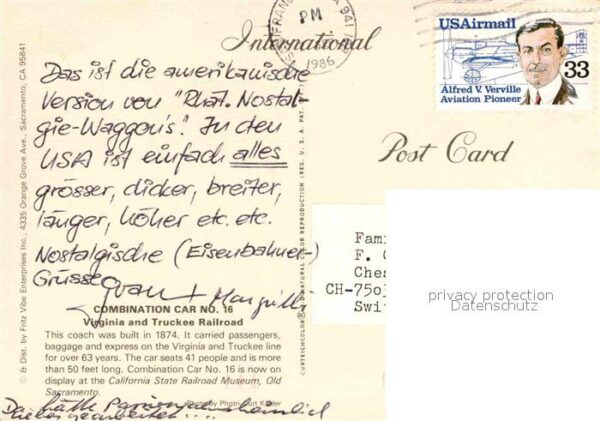 SAN FRANCISCO
PM
1986
CA 941
USAirmail
33
Alfred V. Verville
Aviation Pioneer
International
Post Card
Das ist die amerikanische
Version von "Rhät. Nostal-
gie-Waggons". In den
USA ist einfach alles
grösser, dicker, breiter,
länger, höher etc. etc.
Nostalgische (Eisenbahner-)
Grüsse
+
COMBINATION CAR NO. 16
Virginia and Truckee Railroad
This coach was built in 1874. It carried passengers,
baggage and express on the Virginia and Truckee line
for over 63 years. The car seats 41 people and is more
than 50 feet long. Combination Car No. 16 is now on
display at the California State Railroad Museum, Old
Sacramento.
Photo by Photri-Curt
Da hätte
© & Dist. by Fritz Vibe Enterprises Inc., 4335 Orange Grove Ave., Sacramento, CA 95841
CURTEICHCOLOR® NATURAL COLOR REPRODUCTION (REG. U.S. PAT.
Fami
F.
Ches
CH-750
Swi
privacy protection
Datenschutz